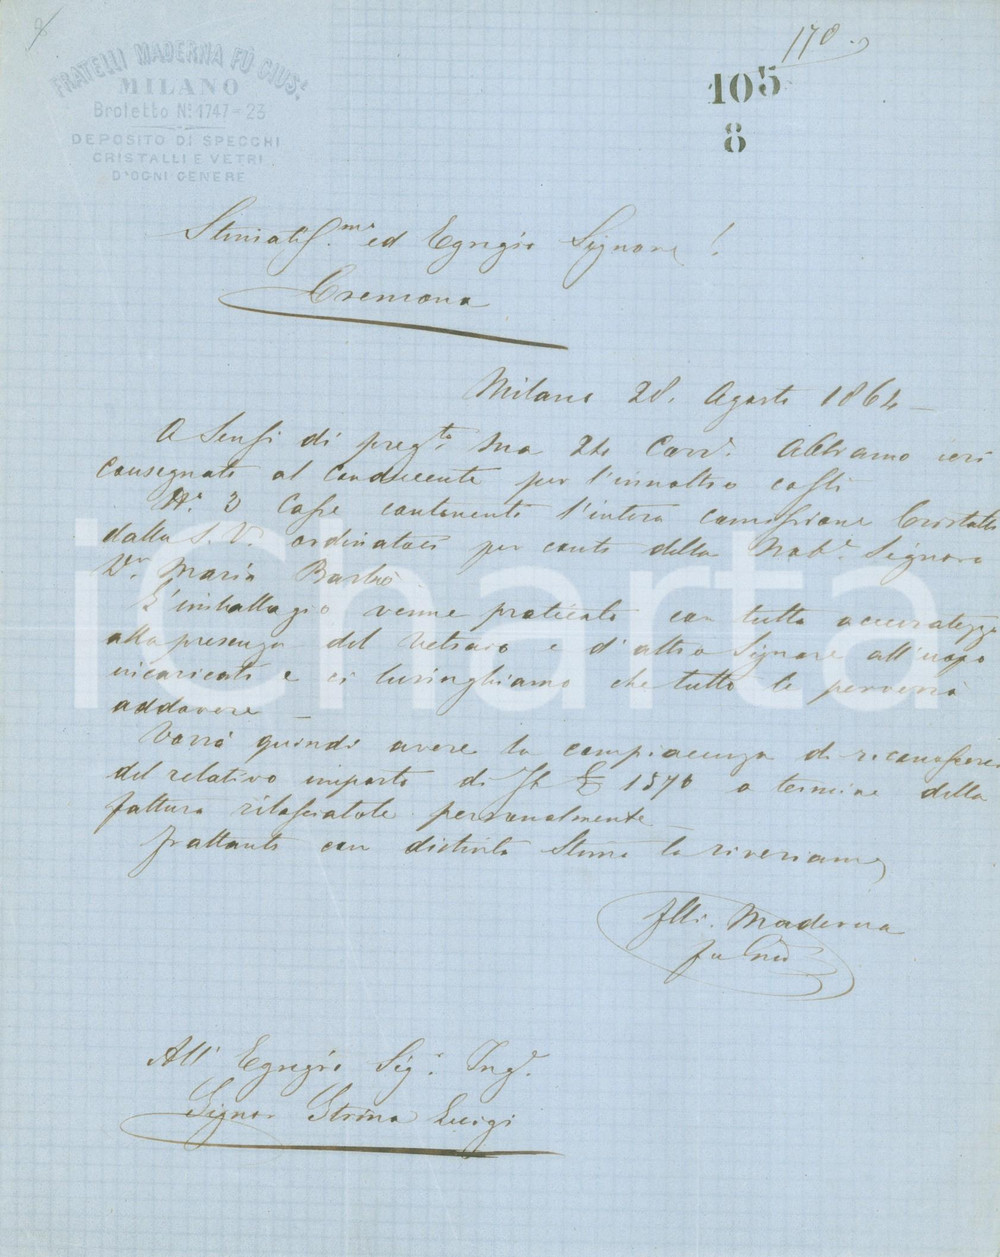 170.
FRATELLI MADERNA FÙ GIUS.e
MILANO
Broletto No. 1747=23
DEPOSITO DI SPECCHI
CRISTALLI E VETRI
D'OGNI GENERE
105
8
Stimatiss.mo ed Egregio Signore!
Cremona
Milano 28. Agosto 1864
A Sensi di preg.ta sua 24 Corr.e Abbiamo ieri
consegnato al Conducente per l'innoltro costì
N.o 3 Casse contenente l'intera comissione Cristalli
dalla S. V. ordinataci per conto della Nob.e Signora
D.a Maria Barbò
L'imballagio venne praticato con tutta accuratezza
alla presenza del Vetraio e d'altro Signore all'uopo
incaricati e ci lusinghiamo che tutto le perverrà
addovere
Vorrà quindi avere la compiacenza di riconoscerci
del relativo importo di 1570 a termine della
fattura rilasciatole personalmente
frattanto con distinta Stima la riveriamo
flli. Maderna
fu Giu
All' Egregio Sig.r Ing.e
Signor Strina Luigi
iCharta